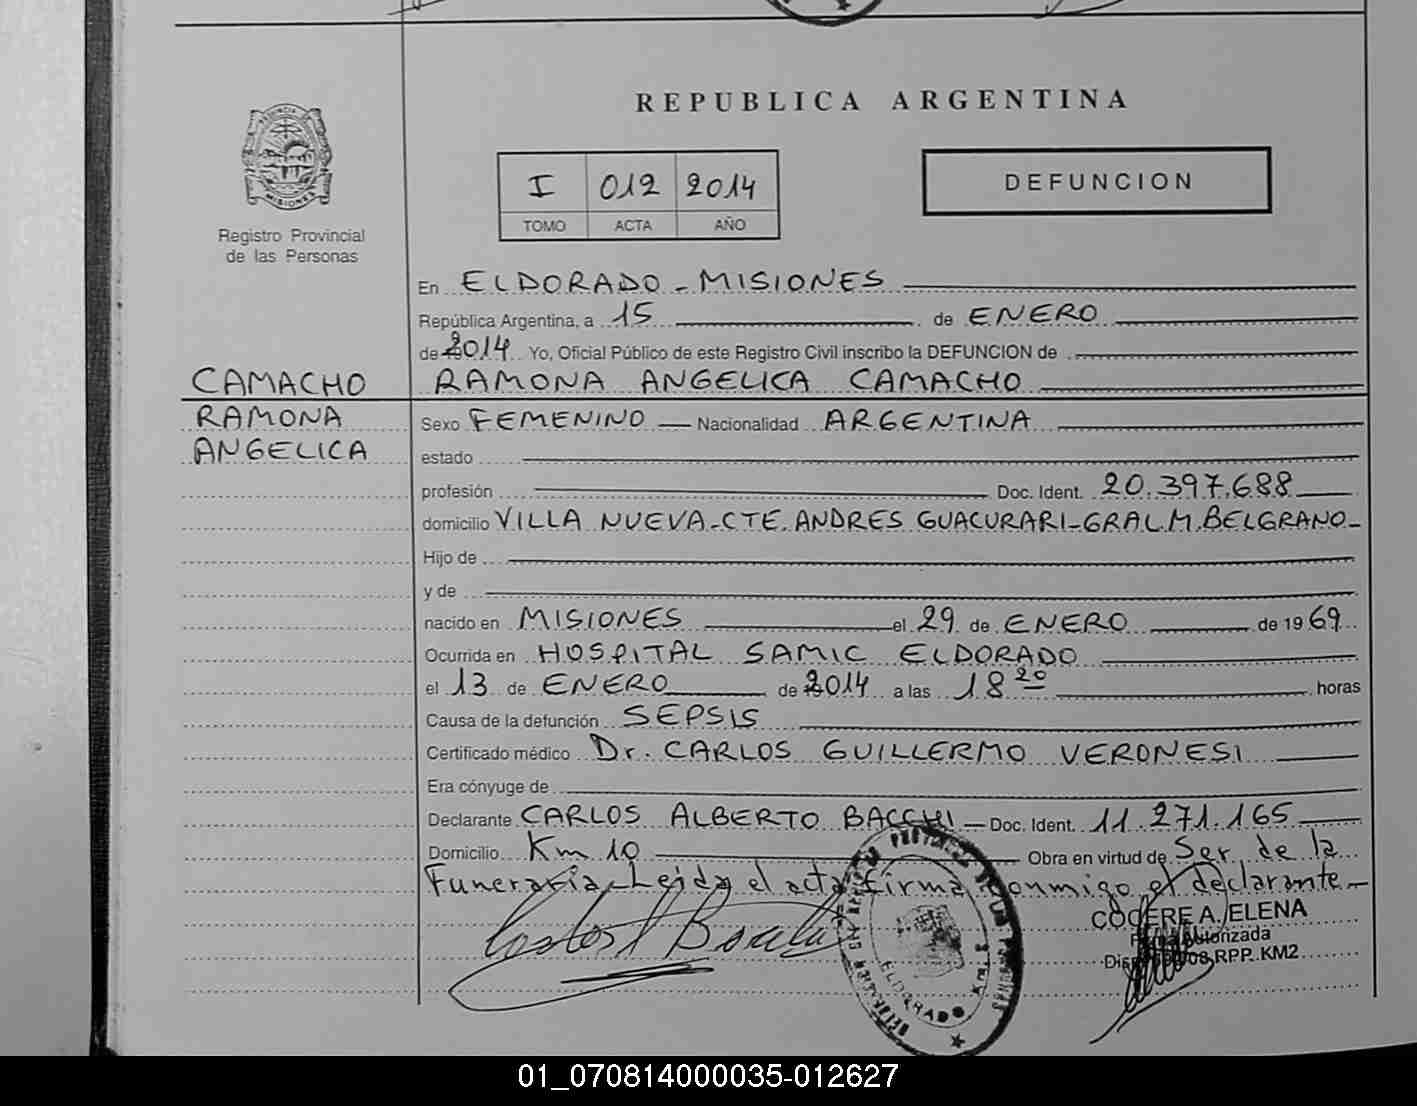 REPUBLICA ARGENTINA
I 012 2014
TOMO ACTA AÑO
DEFUNCION
MISIONES
Registro Provincial
de las Personas
En ELDORADO - MISIONES
República Argentina, a 15 de ENERO
de 2014 Yo, Oficial Público de este Registro Civil inscribo la DEFUNCION de
CAMACHO RAMONA ANGELICA CAMACHO
RAMONA Sexo FEMENINO — Nacionalidad ARGENTINA
ANGELICA estado
profesión Doc. Ident. 20.397.688
domicilio VILLA NUEVA-CTE.ANDRES GUACURARI-GRAL.M.BELGRANO-
Hijo de
y de
nacido en MISIONES el 29 de ENERO de 1969
Ocurrida en HOSPITAL SAMIC ELDORADO
el 13 de ENERO de 2014 a las 18 20 horas
Causa de la defunción SEPSIS
Certificado médico Dr. CARLOS GUILLERMO VERONESI
Era cónyuge de
Declarante CARLOS ALBERTO BACCHI — Doc. Ident. 11.271.165
Domicilio Km 10 Obra en virtud de Ser. de la
Funeraria-Leida el acta firma conmigo el declarante-
COCERE A. ELENA
Autorizada
RPP. KM2
ELDORADO Km. 2
01_070814000035-012627